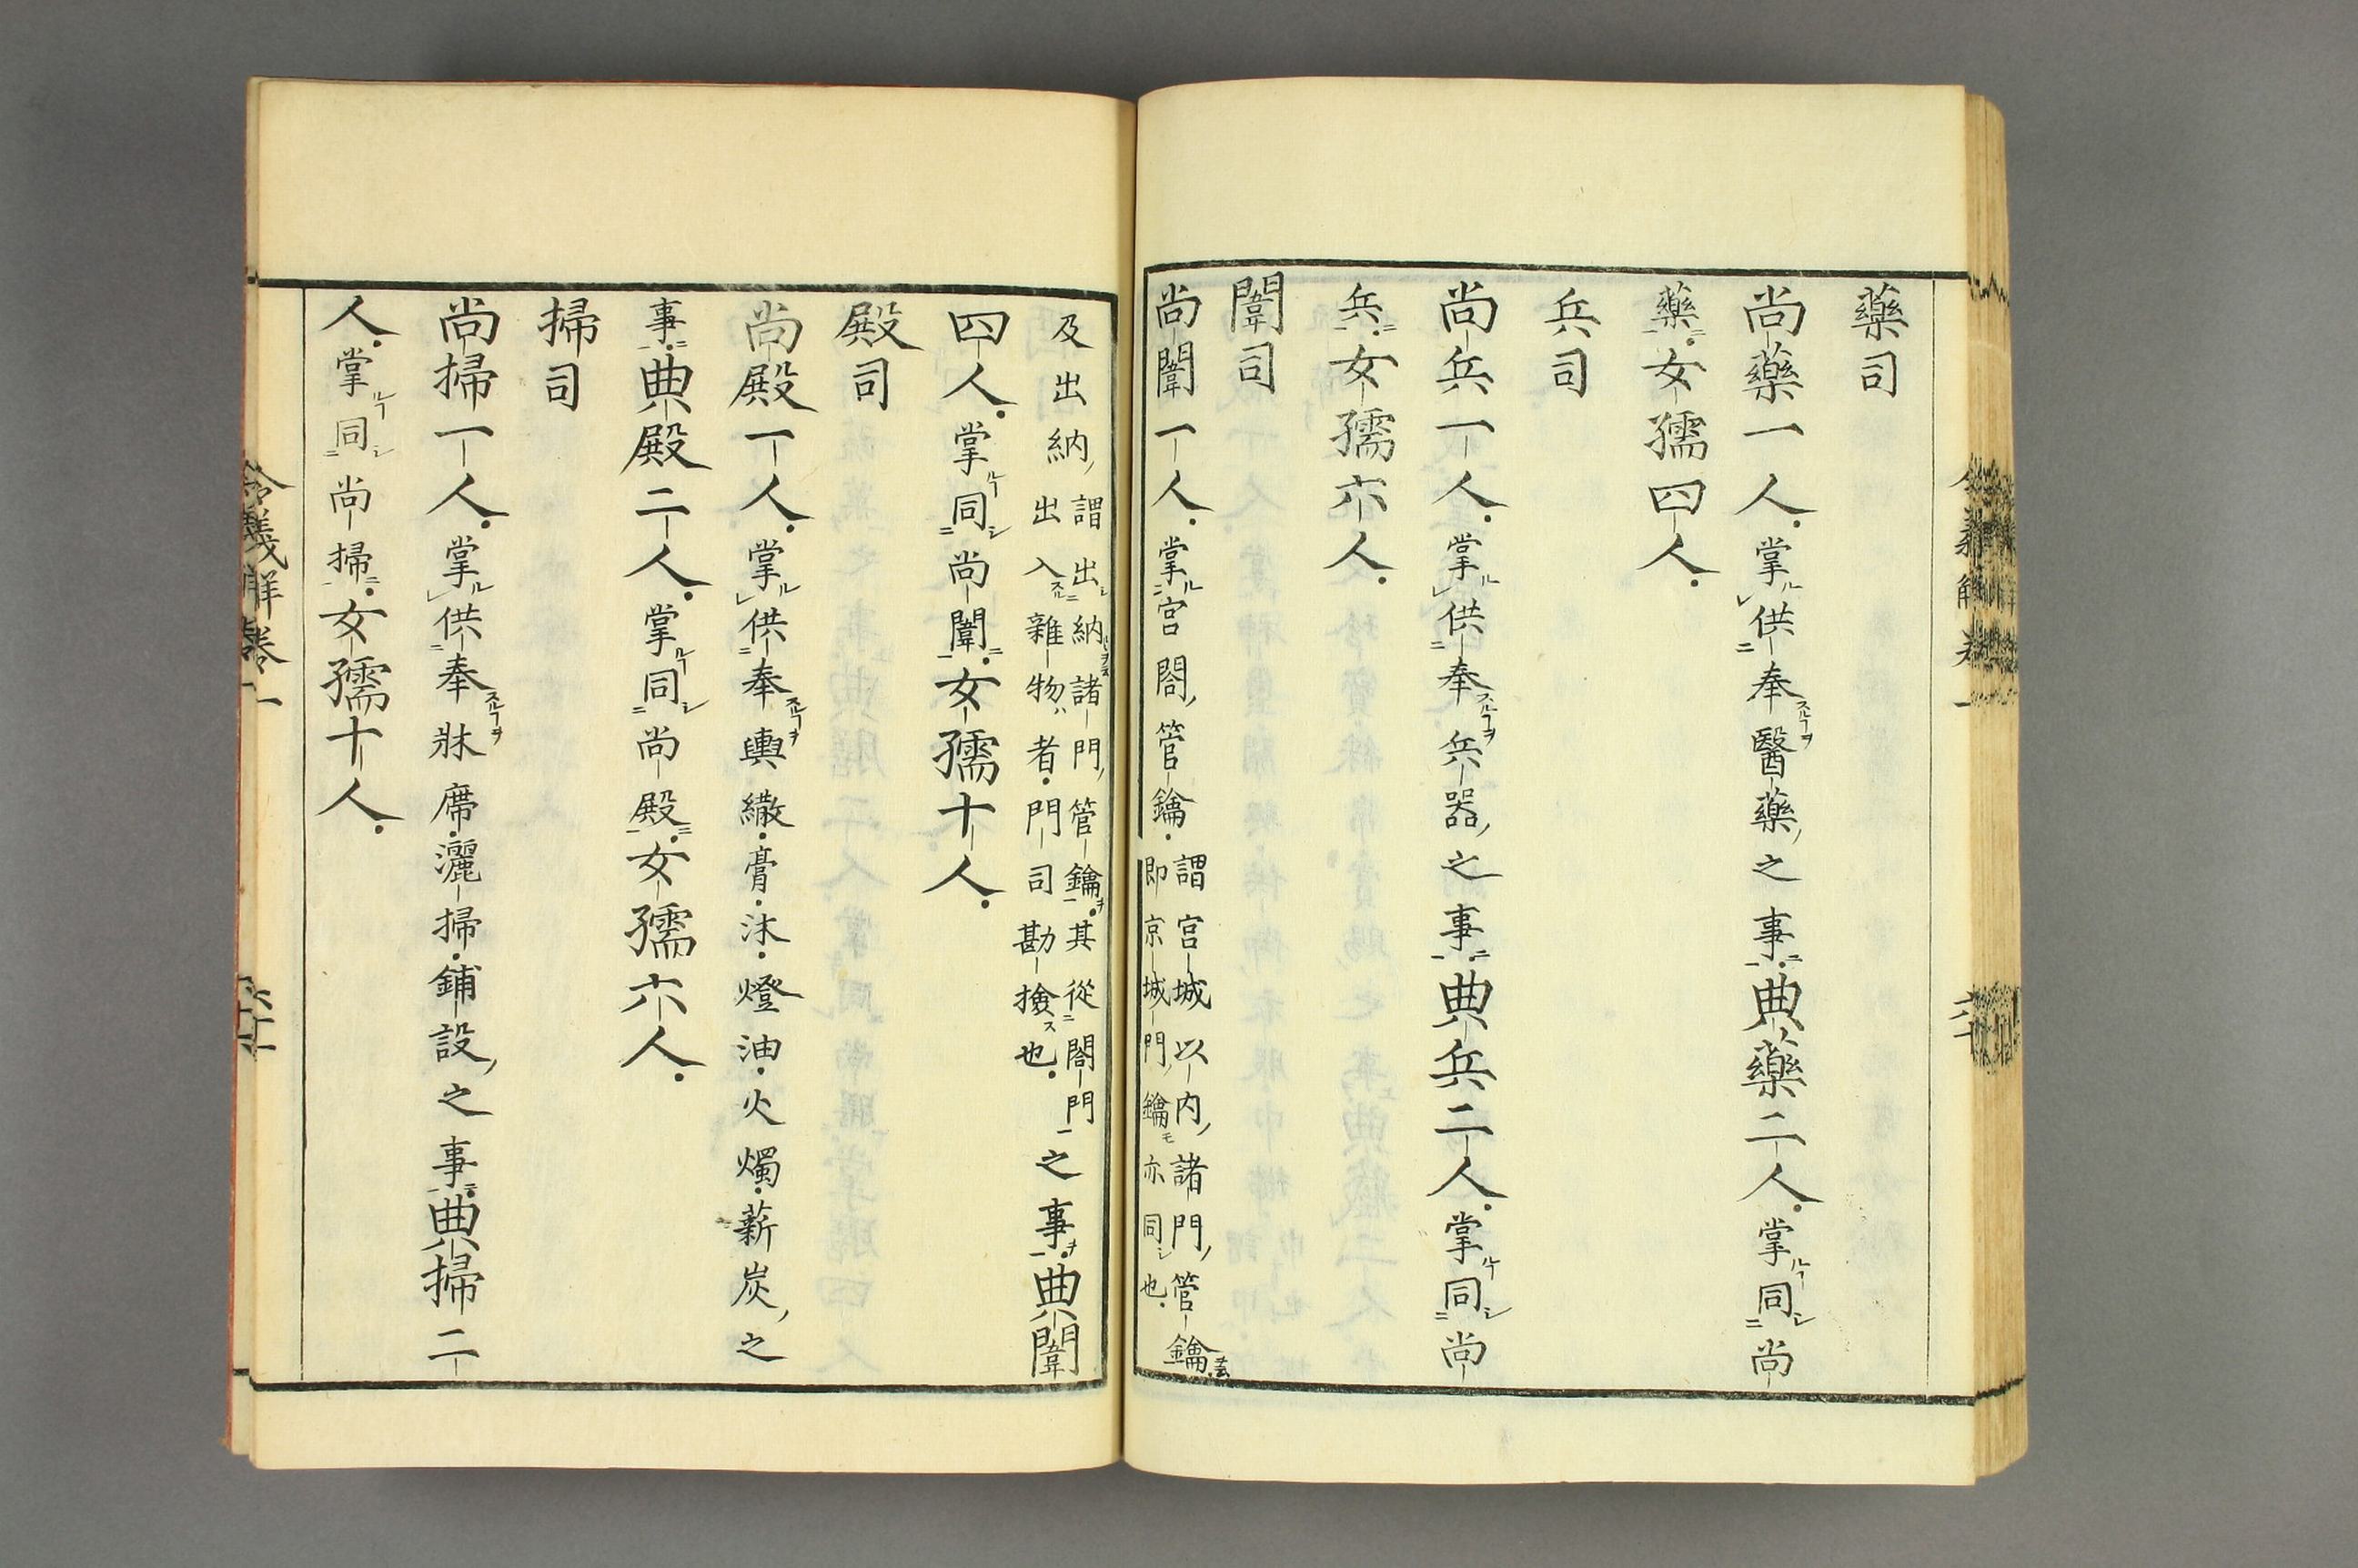 藥司
尚藥一人掌供奉醫藥之事典藥二人掌同尚
藥女孺四人
兵司
尚兵一人掌供奉兵器之事典兵二人掌同尚
兵女孺六人
闈司
尚闈一人掌宮閤管鑰
謂宮城以内諸門管鑰
即京城門鑰亦同也
及出納
謂出納諸門管鑰其從閤門
出入雜物者門司勘撿也
之事典闈
四人掌同尚闈女孺十人
殿司
尚殿一人掌供奉輿繖膏沐燈油火燭薪炭之
事典殿二人掌同尚殿女孺六人
掃司
尚掃一人掌供奉牀席灑掃鋪設之事典掃二
人掌同尚掃女孺十人
令義解卷一